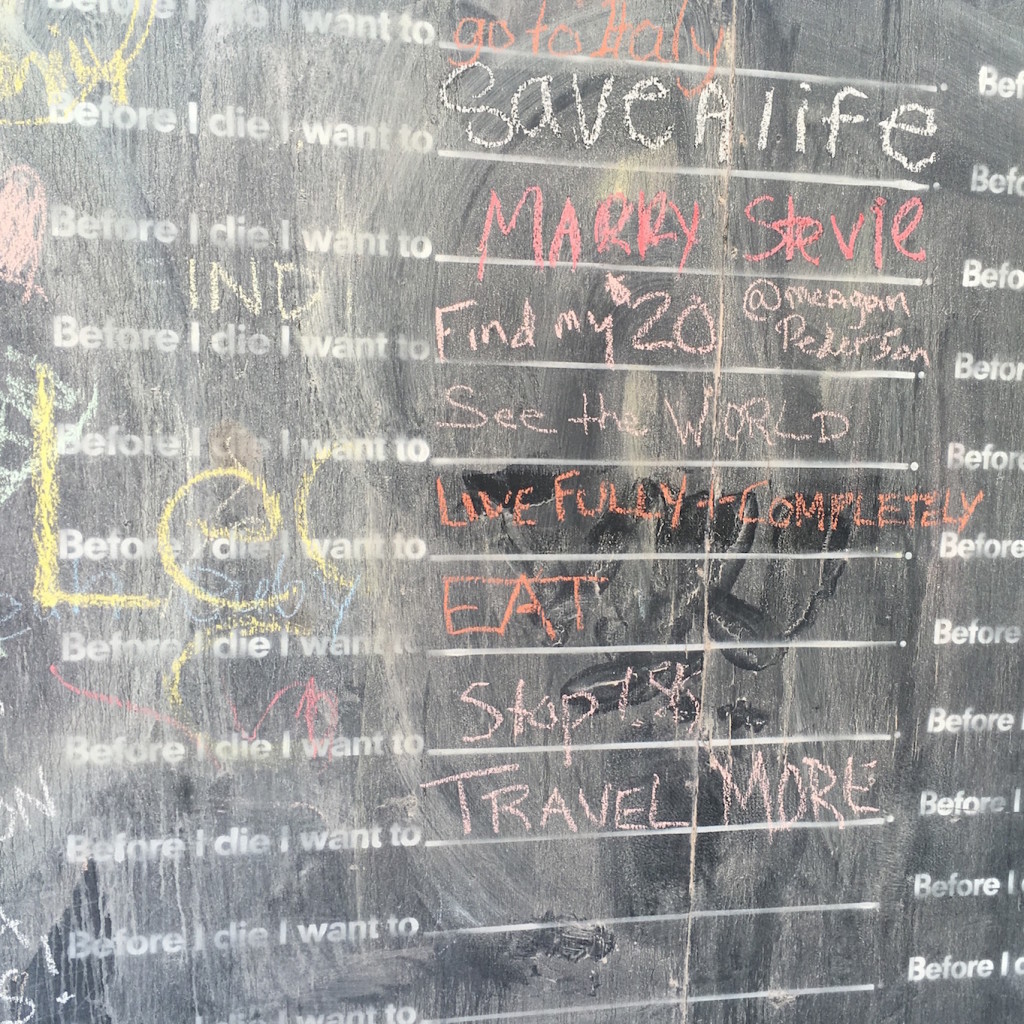 Before I die I want to go to Italy
Before I die I want to Save A life.
Before I die I want to MARRY Stevie.
Before I die I want to Find my 20 @meagan Pederson.
IND
Before I die I want to See the WORLD.
Before I die I want to LIVE FULLY + COMPLETELY.
Leo
Before I die I want to EAT.
Before I die I want to Stop
Before I die I want to TRAVEL MORE.
Before I die I want to
Before I die I want to
Before
Before
Before
Before
Before I
Before I
Before I
Before I d